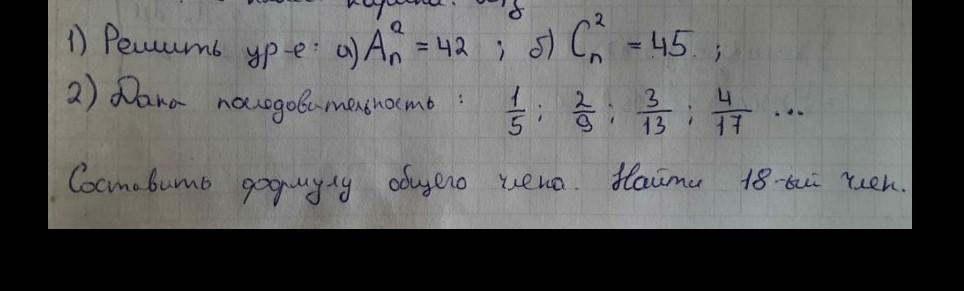 1) Решить ур-е: а) Aₙ² = 42 ; б) Cₙ² = 45 ;
2) Дана последовательность : 1/5 ; 2/9 ; 3/13 ; 4/17 ...
Составить формулу общего члена. Найти 18-ый член.